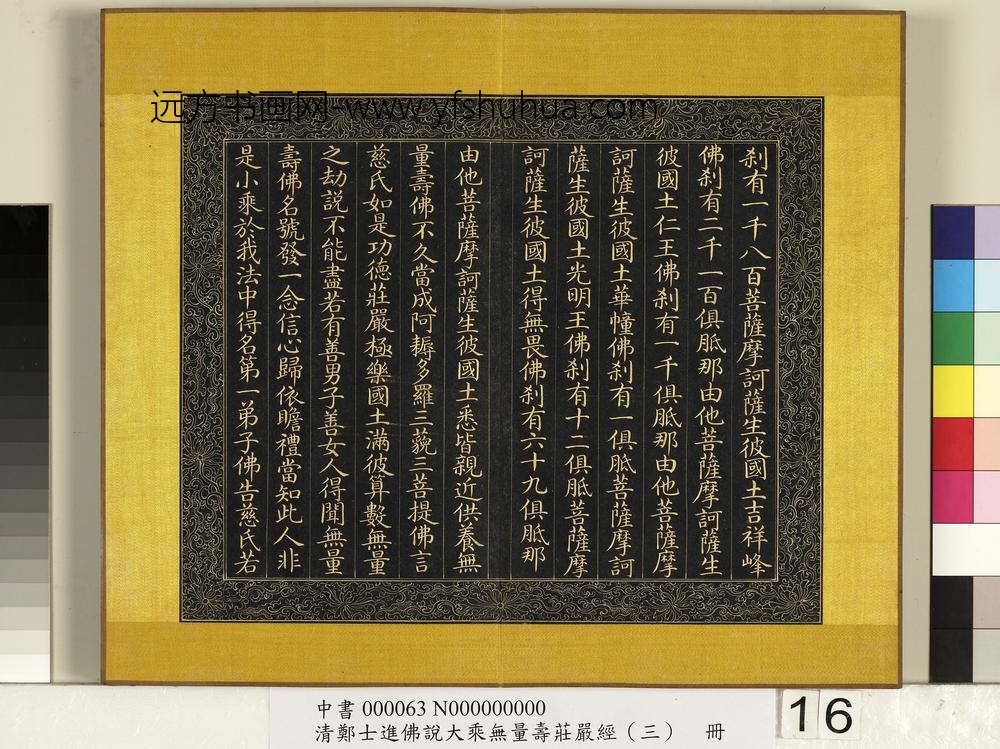 远方书画网-www.yfshuhua.com
刹有一千八百菩薩摩訶薩生彼國土吉祥峰
佛刹有二千一百俱胝那由他菩薩摩訶薩生
彼國土仁王佛刹有一千俱胝那由他菩薩摩
訶薩生彼國土華幢佛刹有一俱胝菩薩摩訶
薩生彼國土光明王佛刹有十二俱胝菩薩摩
訶薩生彼國土得無畏佛刹有六十九俱胝那
由他菩薩摩訶薩生彼國土悉皆親近供養無
量壽佛不久當成阿耨多羅三藐三菩提佛言
慈氏如是功德莊嚴極樂國土滿彼算數無量
之劫說不能盡若有善男子善女人得聞無量
壽佛名號發一念信心歸依瞻禮當知此人非
是小乘於我法中得名第一弟子佛告慈氏若
中書 000063 N000000000
清鄭士進佛說大乘無量壽莊嚴經（三） 冊
16